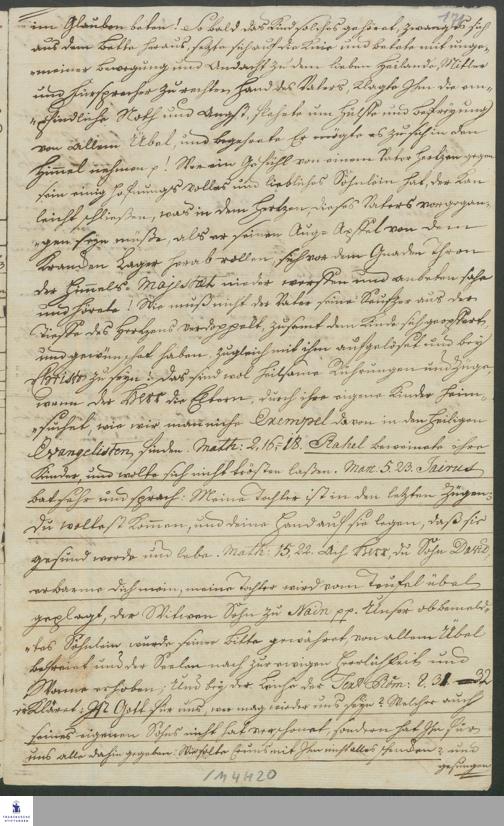 im Glauben beten! So bald das Kind solches gehöret, zwang es sich
aus dem Bette heraus, setzte sich auf die Knie und betete mit unge-
meiner bewegung und Andacht zu dem lieben Heilande, Mittler
und Fürsprecher zur rechten Hand des Vaters, klagte Ihm die em-
pfindliche Noth und Angst, flehete um Hülffe und befreyung
von allem Übel, und begehrete Er mögte es zu sich in den
Himmel nehmen p! Wer ein Gefühl von einem Vater Hertzen gegen
sein einig hofnungs volles und liebliches Söhnlein hat, der kan
leicht schließen, was in dem Hertzen dieses Vaters vorgegan-
gen seyn müße, als er seinen Aug-Apffel von dem
Krancken Lager herab rollen, sich vor dem Gnaden Thron
der Himels-Majestät nieder werffen und anbeten sahe
und hörete! Wie muß nicht der Vater seine Seufzer aus der
Tieffe des Hertzens verdoppelt, zusamt dem Kinde sich geopffert,
und gewünschet haben, zugleich mit ihm aufgelöset und bey
Christo zu seyn! Das sind wol heilsame Rührungen und Züge
wenn der Herr die Eltern, durch ihre eigene Kinder heim-
suchet, wie wir manche Exempel davon in den Heiligen
Evangelisten finden. Math: 2, 16-18. Rahel beweinete ihre
Kinder, und wolte sich nicht trösten laßen. Mar. 5. 23. Jairus
bat sehr und sprach: Meine Tochter ist in den letzten Zügen:
Du wollest kommen, und deine Hand auf sie legen, daß sie
gesund werde und lebe. Math: 15, 22. Ach Herr, du Sohn David,
erbarme dich mein, meine Tochter wird vom Teufel übel
geplagt, der Witwen Sohn zu Nain pp. Unser obbemeld-
tes Söhnlein wurde seiner bitte gewähret, von allem Übel
befreiet und der Seelen nach zur ewigen Herrlichkeit und
Wonne erhoben; Und bey der Leiche der Text Röm: 8. 31-32
erkläret: Ist Gott für uns, wer mag wieder uns seyn? Welcher auch
seines eigenen Sohns nicht hat verschonet, sondern hat Ihn für
uns alle dahin gegeben. Wie solte Er uns mit Ihm nicht alles schencken? und
gesungen
1 M 4 H 20
FRANCKESCHE
STIFTUNGEN